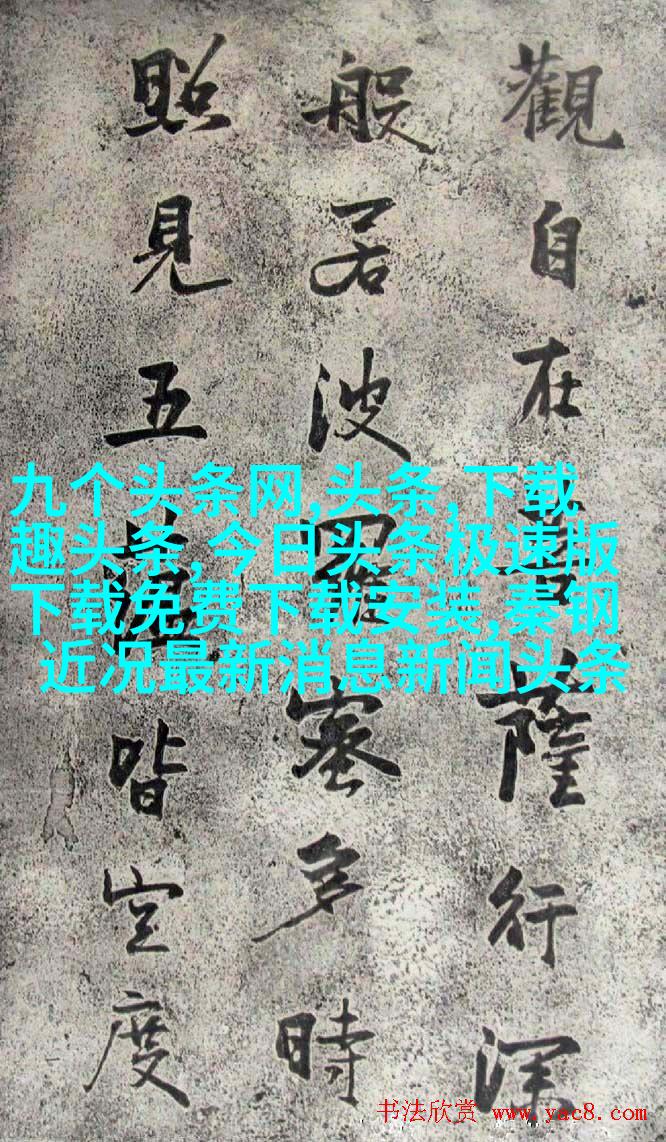 觀自在菩薩行深
般若波羅蜜多時
照見五蘊皆空度
九个头条网,头条,下载
趣头条,今日头条极速版
下载免费下载安装,秦钢
近况最新消息新闻头条
书法欣赏 www.yac8.com